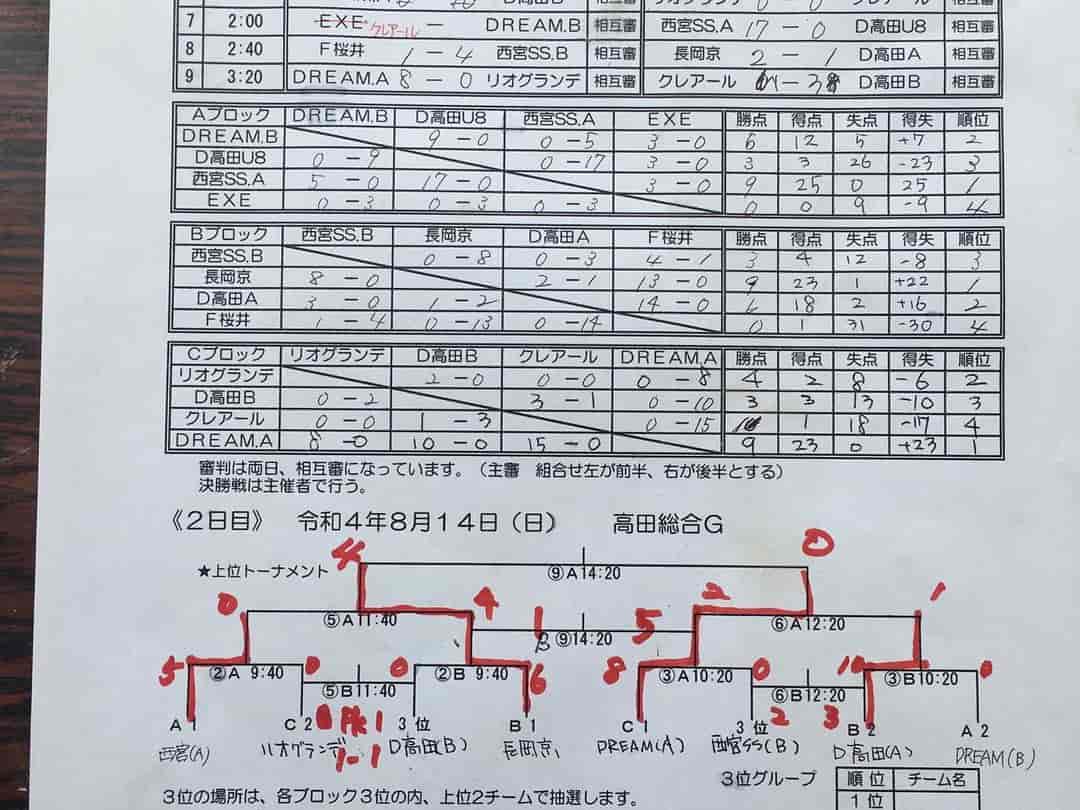 7 2:00 EXE クレアール － DREAM.B 相互審 西宮SS.A 17－0 D高田U8 相互審
8 2:40 F桜井 1－4 西宮SS.B 相互審 長岡京 2－1 D高田A 相互審
9 3:20 DREAM.A 8－0 リオグランデ 相互審 クレアール － 3 D高田B 相互審
Aブロック DREAM.B D高田U8 西宮SS.A EXE 勝点 得点 失点 得失 順位
DREAM.B 9－0 0－5 3－0 6 12 5 +7 2
D高田U8 0－9 0－17 3－0 3 3 26 -23 3
西宮SS.A 5－0 17－0 3－0 9 25 0 25 1
EXE 0－3 0－3 0－3 0 0 9 -9 4
Bブロック 西宮SS.B 長岡京 D高田A F桜井 勝点 得点 失点 得失 順位
西宮SS.B 0－8 0－3 4－1 3 4 12 -8 3
長岡京 8－0 2－1 13－0 9 23 1 +22 1
D高田A 3－0 1－2 14－0 6 18 2 +16 2
F桜井 1－4 0－13 0－14 0 1 31 -30 4
Cブロック リオグランデ D高田B クレアール DREAM.A 勝点 得点 失点 得失 順位
リオグランデ 2－0 0－0 0－8 4 2 8 -6 2
D高田B 0－2 3－1 0－10 3 3 13 -10 3
クレアール 0－0 1－3 0－15 1 18 -17 4
DREAM.A 8－0 10－0 15－0 9 23 0 +23 1
審判は両日、相互審になっています。（主審　組合せ左が前半、右が後半とする）
決勝戦は主催者で行う。
《2日目》 令和4年8月14日（日） 高田総合G
4 0
★上位トーナメント ⑨A14:20
0 4 1 5 2 1
⑤A11:40 ⑨14:20 B ⑥A12:20
5 ②A 9:40 0 0 ②B 9:40 6 8 ③A10:20 0 10 ③B10:20 0
⑤B11:40 ⑥B12:20
A1 C2 PK1 3位 B1 C1 3位 2 3 B2 A2
西宮(A) リオグランデ 1-1 D高田(B) 長岡京 DREAM(A) 西宮SS(B) D高田(A) DREAM(B)
3位グループ 順位 チーム名
3位の場所は、各ブロック3位の内、上位2チームで抽選します。 1位